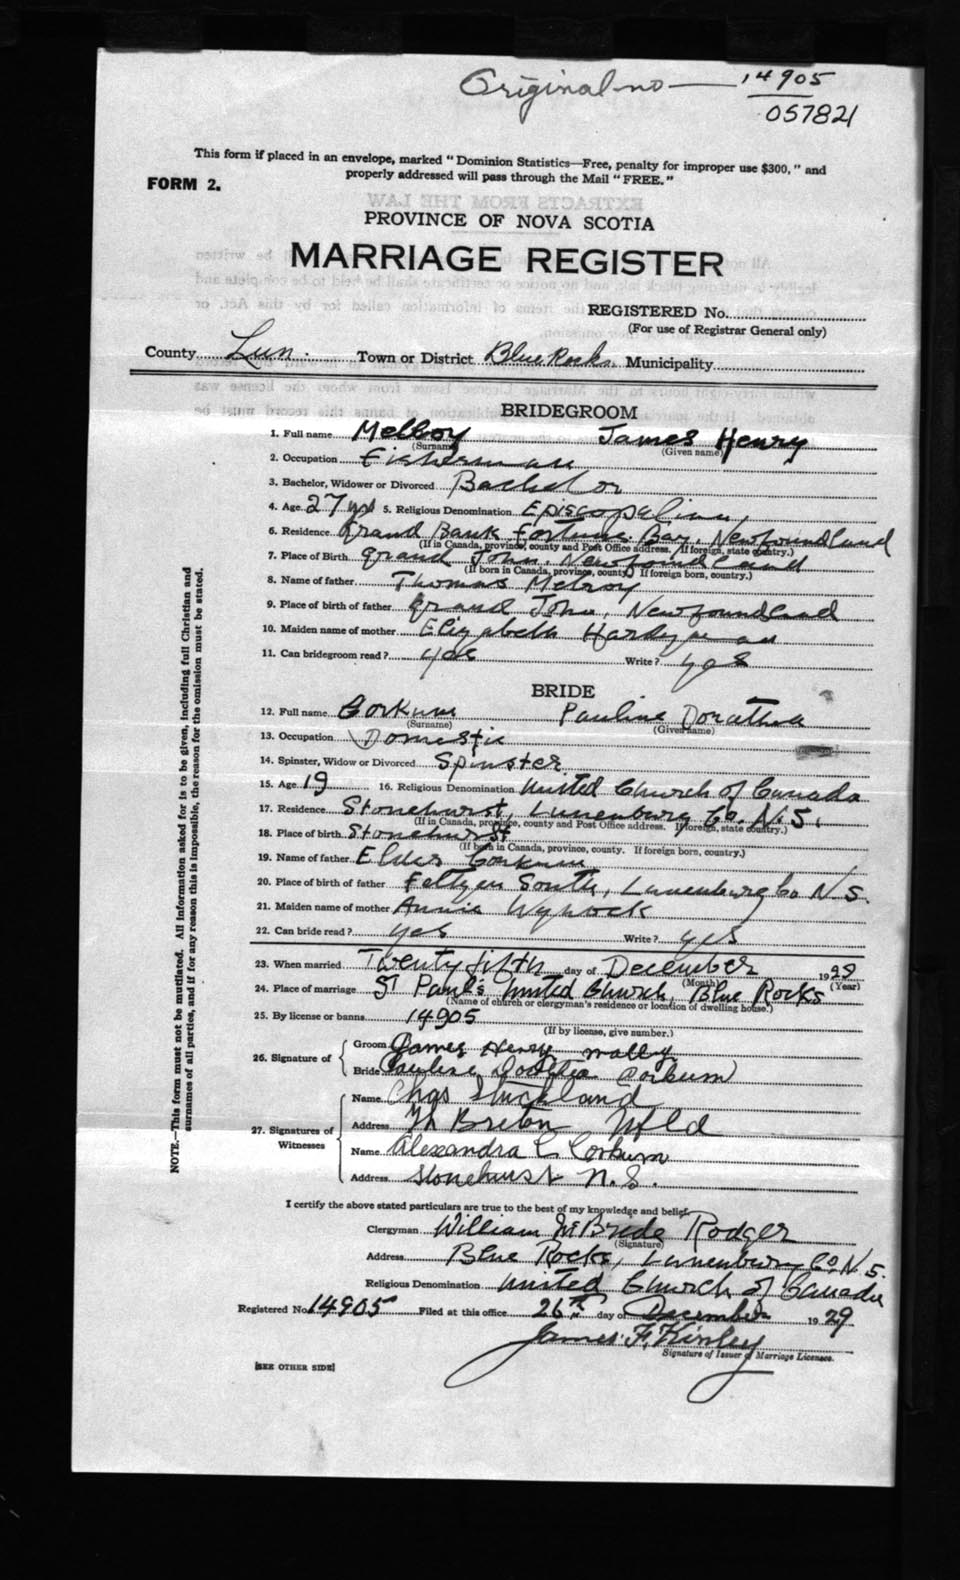 Original no — 14905
057821
This form if placed in an envelope, marked "Dominion Statistics—Free, penalty for improper use $300," and
properly addressed will pass through the Mail "FREE."
FORM 2.
EXTRACTS FROM THE LAW
PROVINCE OF NOVA SCOTIA
MARRIAGE REGISTER
REGISTERED No.
(For use of Registrar General only)
County Lun. Town or District Blue Rocks Municipality
BRIDEGROOM
1. Full name Melroy James Henry
(Surname) (Given name)
2. Occupation Fisherman
3. Bachelor, Widower or Divorced Bachelor
4. Age 27 yrs 5. Religious Denomination Episcopalian
6. Residence Grand Bank Fortune Bay, Newfoundland
(If in Canada, province, county and Post Office address. If foreign, state country.)
7. Place of Birth Grand John, Newfoundland
(If born in Canada, province, county. If foreign born, country.)
8. Name of father Thomas Melroy
9. Place of birth of father Grand John, Newfoundland
10. Maiden name of mother Elizabeth Hardyman
11. Can bridegroom read? yes Write? yes
BRIDE
12. Full name Corkum Pauline Dorathea
(Surname) (Given name)
13. Occupation Domestic
14. Spinster, Widow or Divorced Spinster
15. Age 19 16. Religious Denomination United Church of Canada
17. Residence Stonehurst, Lunenburg Co. N.S.
(If in Canada, province, county and Post Office address. If foreign, state country.)
18. Place of birth Stonehurst
(If born in Canada, province, county. If foreign born, country.)
19. Name of father Corkum
20. Place of birth of father Feltzen South, Lunenburg Co N.S.
21. Maiden name of mother Annie Wynock
22. Can bride read? yes Write? yes
23. When married Twenty fifth day of December 1929
(Month) (Year)
24. Place of marriage St Paul's United Church, Blue Rocks
(Name of church or clergyman's residence or location of dwelling house.)
25. By license or banns 14905
(If by license, give number.)
26. Signature of
Groom James Henry
Bride Pauline Corkum
27. Signatures of Witnesses
Name Chas Strickland
Address Breton Nfld
Name Alexandra C Corkum
Address Stonehurst N.S.
I certify the above stated particulars are true to the best of my knowledge and belief.
Clergyman William McBride Rodger
(Signature)
Address Blue Rocks, Lunenburg Co. N.S.
Religious Denomination United Church of Canada
Registered No. 14905 Filed at this office 26th day of December 1929
James F. Kinley
Signature of Issuer of Marriage Licenses.
[SEE OTHER SIDE]
NOTE.—This form must not be mutilated. All information asked for is to be given, including full Christian and
surnames of all parties, and if for any reason this is impossible, the reason for the omission must be stated.